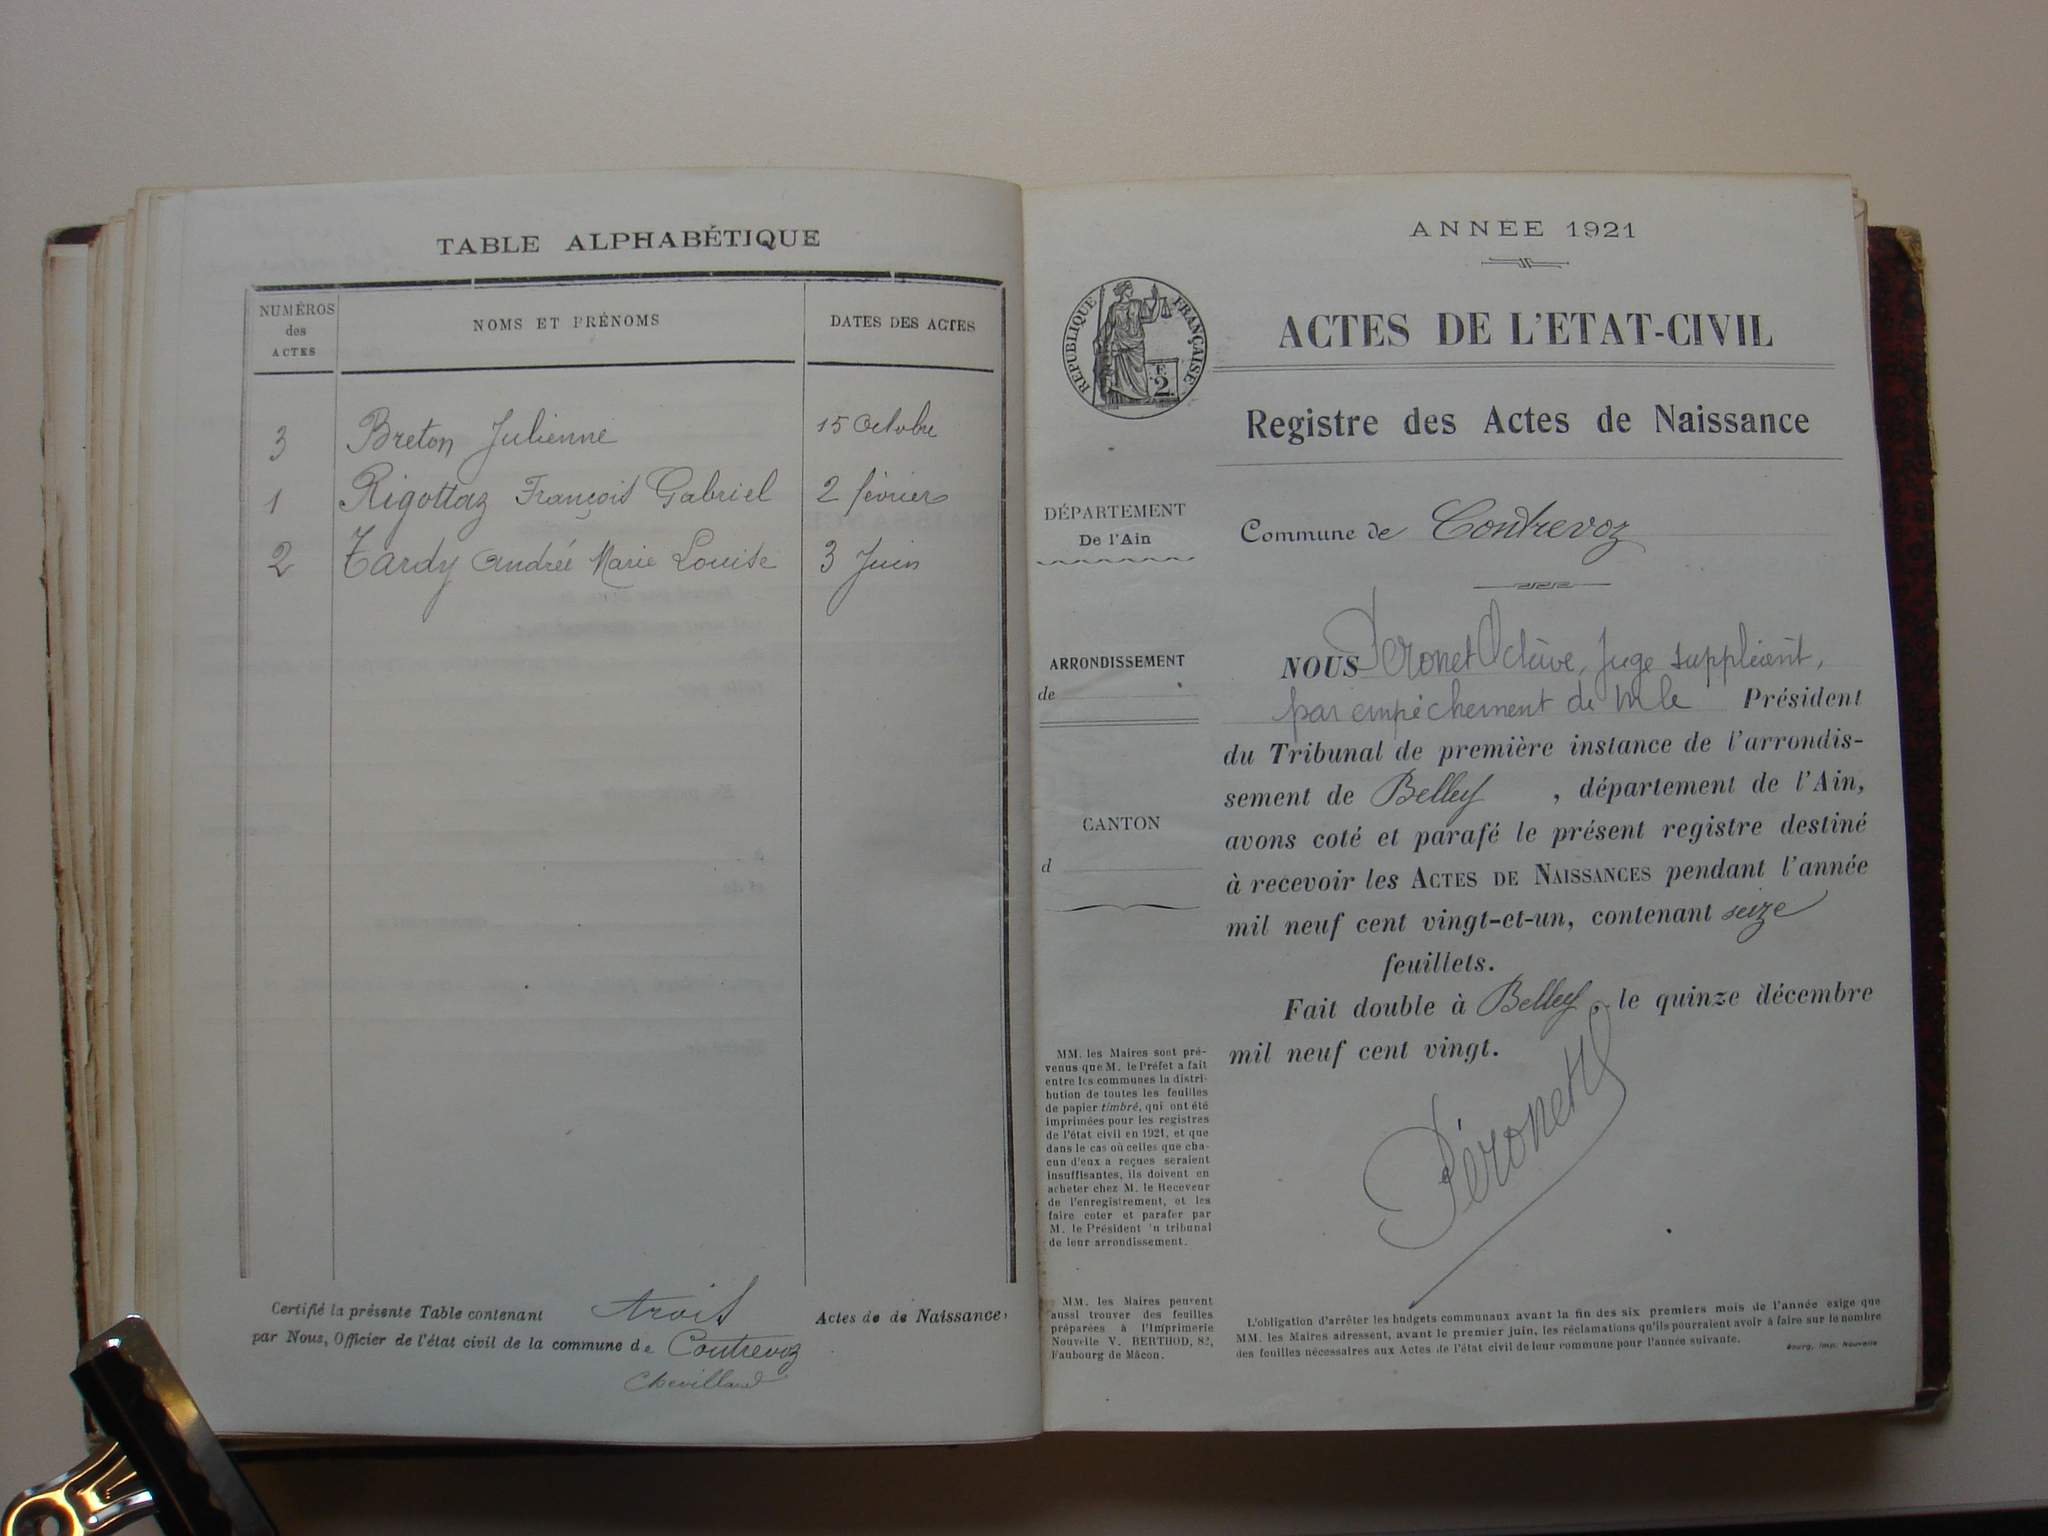 TABLE ALPHABÉTIQUE
NUMÉROS
des
ACTES
NOMS ET PRÉNOMS
DATES DES ACTES
3 Breton Julienne 15 Octobre
1 Rigottaz François Gabriel 2 février
2 Tardy Andrée Marie Louise 3 Juin
Certifié la présente Table contenant trois Actes de de Naissance,
par Nous, Officier de l'état civil de la commune de Contrevoz
Chevilland
ANNÉE 1921
RÉPUBLIQUE FRANÇAISE
F.
2
ACTES DE L'ETAT-CIVIL
Registre des Actes de Naissance
DÉPARTEMENT
De l'Ain
Commune de Contrevoz
ARRONDISSEMENT
de
CANTON
d
NOUS Péronet Octave, Juge suppléant,
par empêchement de Mr le Président
du Tribunal de première instance de l'arrondis-
sement de Belley, département de l'Ain,
avons coté et parafé le présent registre destiné
à recevoir les ACTES DE NAISSANCES pendant l'année
mil neuf cent vingt-et-un, contenant seize
feuillets.
Fait double à Belley, le quinze décembre
mil neuf cent vingt.
Péronet
MM. les Maires sont pré-
venus que M. le Préfet a fait
entre les communes la distri-
bution de toutes les feuilles
de papier timbré, qui ont été
imprimées pour les registres
de l'état civil en 1921, et que
dans le cas où celles que cha-
cun d'eux a reçues seraient
insuffisantes, ils doivent en
acheter chez M. le Receveur
de l'enregistrement, et les
faire coter et parafer par
M. le Président 'u tribunal
de leur arrondissement.
MM. les Maires peuvent
aussi trouver des feuilles
préparées à l'Imprimerie
Nouvelle V. BERTHOD, 82,
Faubourg de Mâcon.
L'obligation d'arrêter les budgets communaux avant la fin des six premiers mois de l'année exige que
MM. les Maires adressent, avant le premier juin, les réclamations qu'ils pourraient avoir à faire sur le nombre
des feuilles nécessaires aux Actes de l'état civil de leur commune pour l'année suivante.
Bourg, Imp. Nouvelle